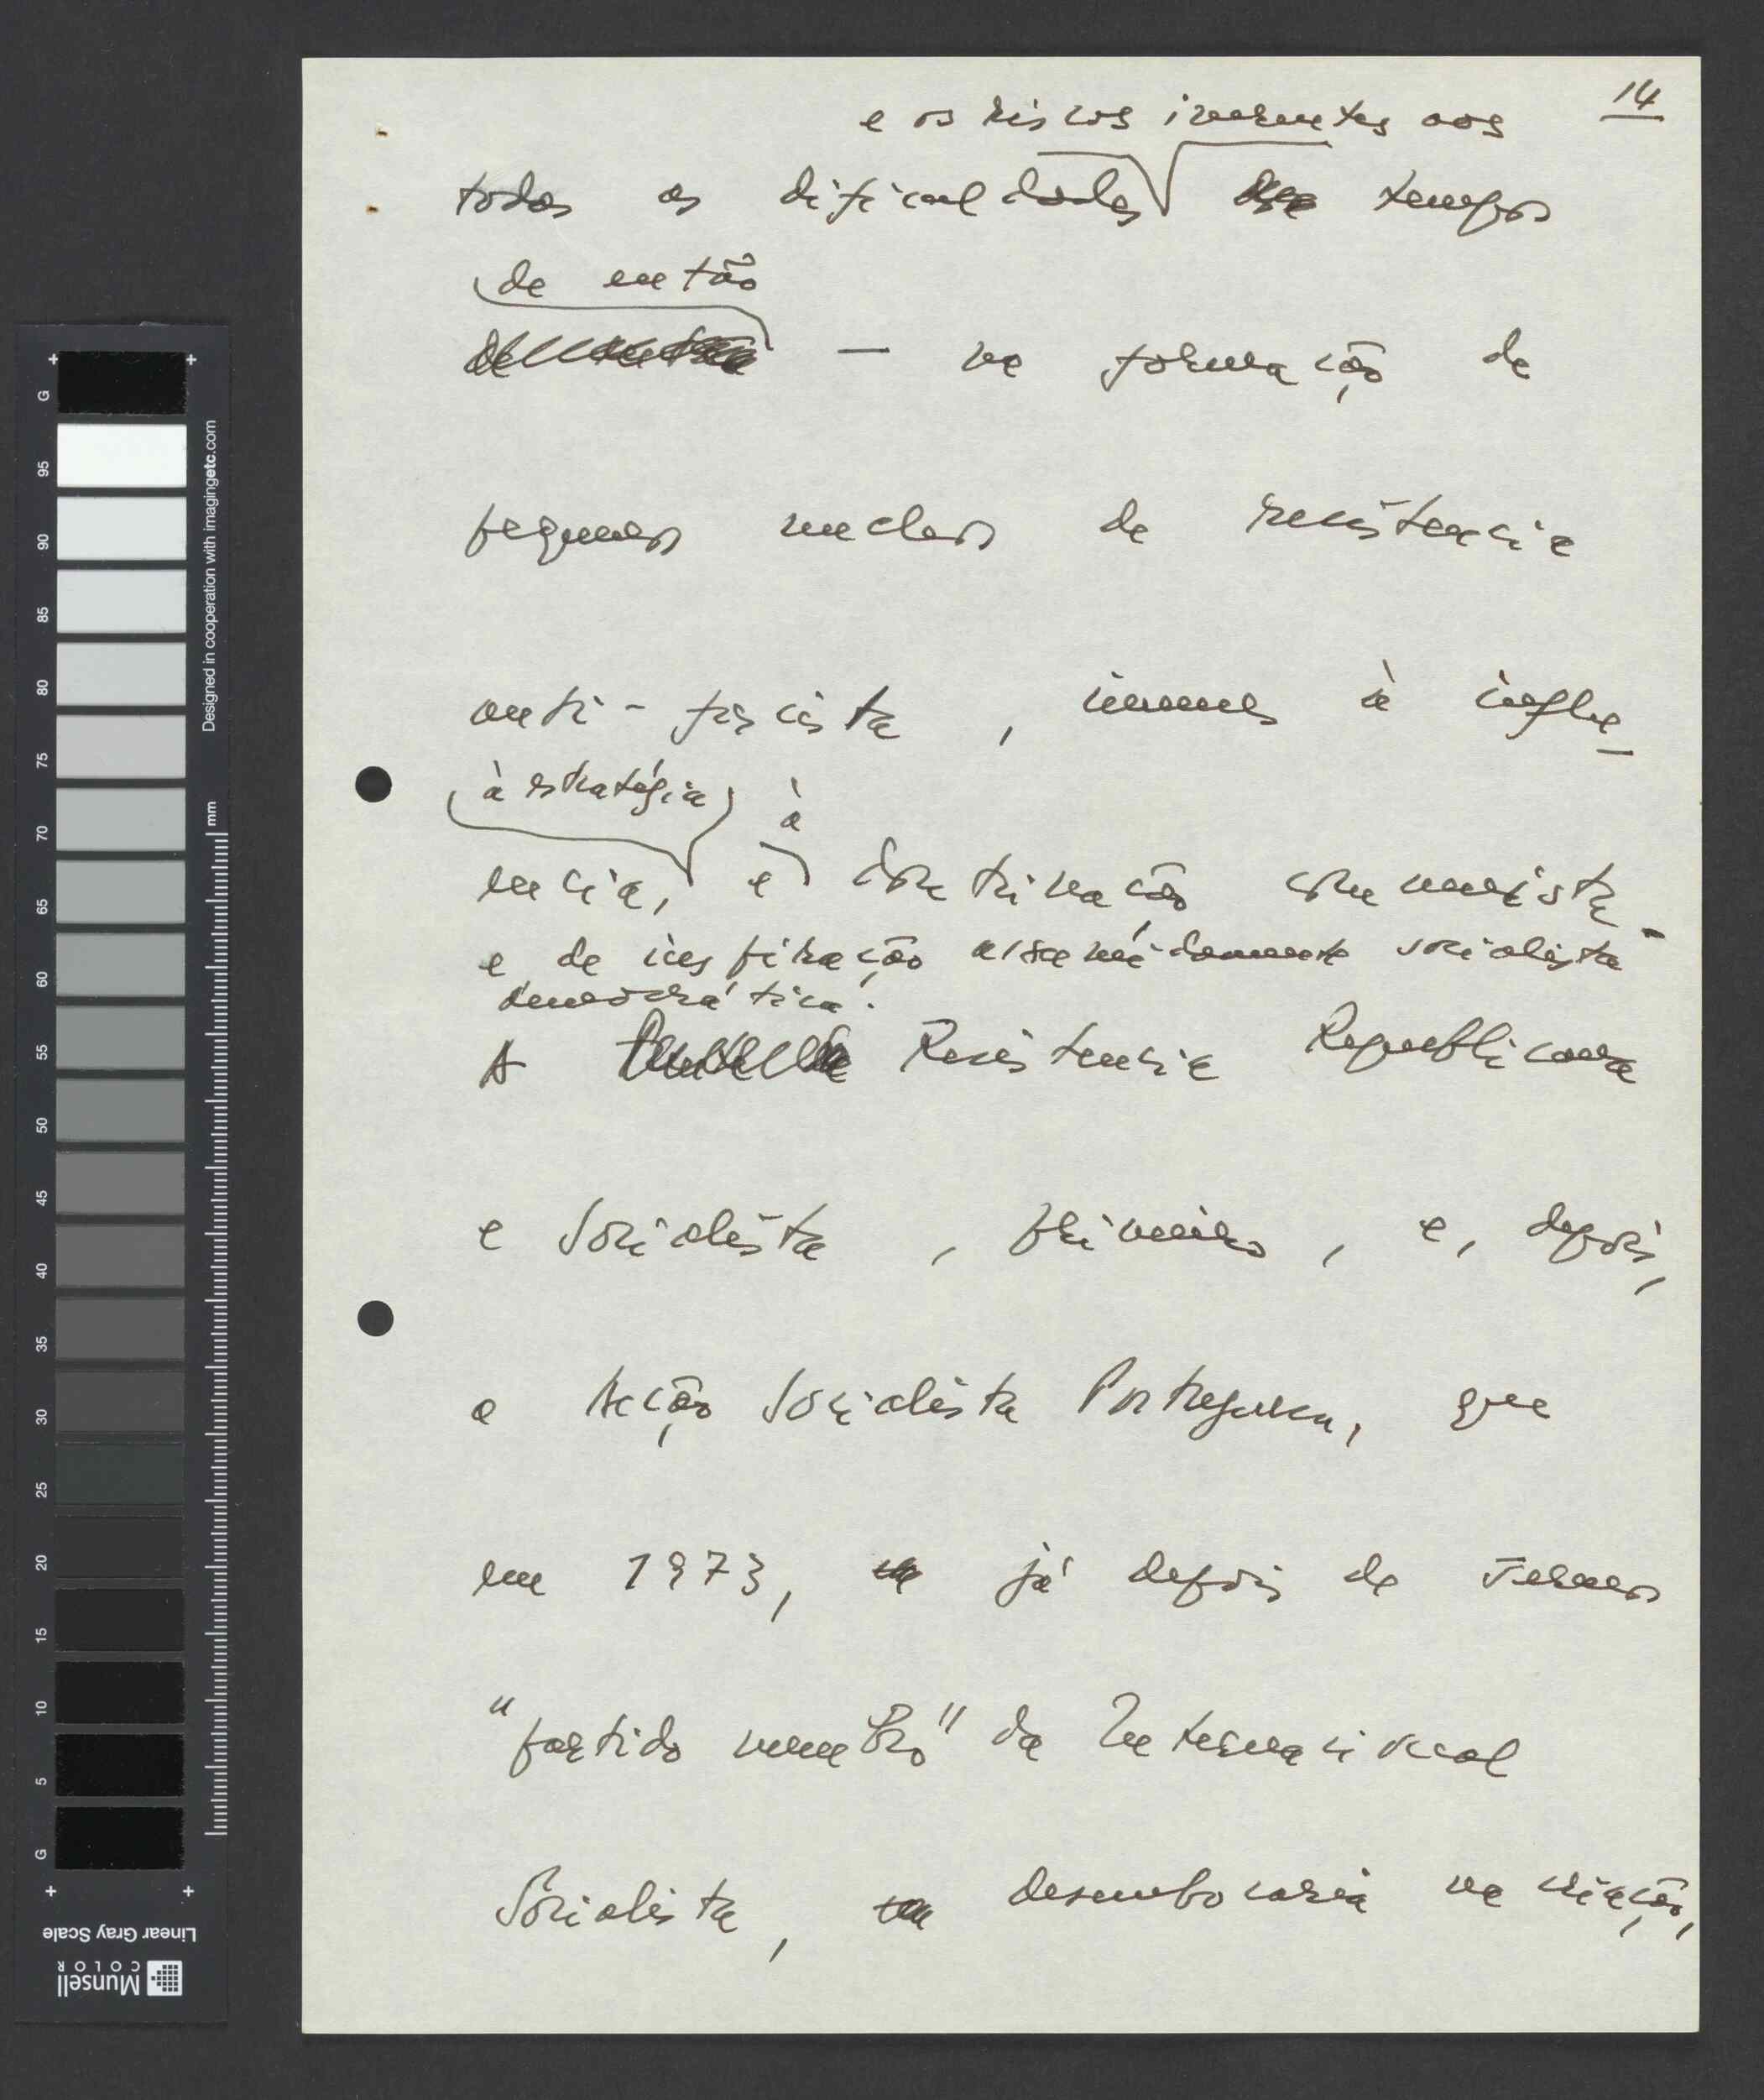 14
e os riscos inerentes aos
todas as dificuldades tempos
de então
— na formação de
pequenos nucleos de resistencia
anti-fascista, imunes à influ-
à estratégia à
encia, e doutrinação comunista
e de inspiração assumidamente socialista
democrática.
A Resistencia Republicana
e Socialista, primeiro, e, depois,
a Acção Socialista Portuguesa, que
em 1973, já depois de sermos
"partido membro" da Internacional
Socialista, desembocaria na criação,
G
95
90
85
80
75
70
65
60
55
50
45
40
35
30
25
20
15
10
5
G
Designed in cooperation with imagingetc.com
mm
Linear Gray Scale
Munsell
COLOR